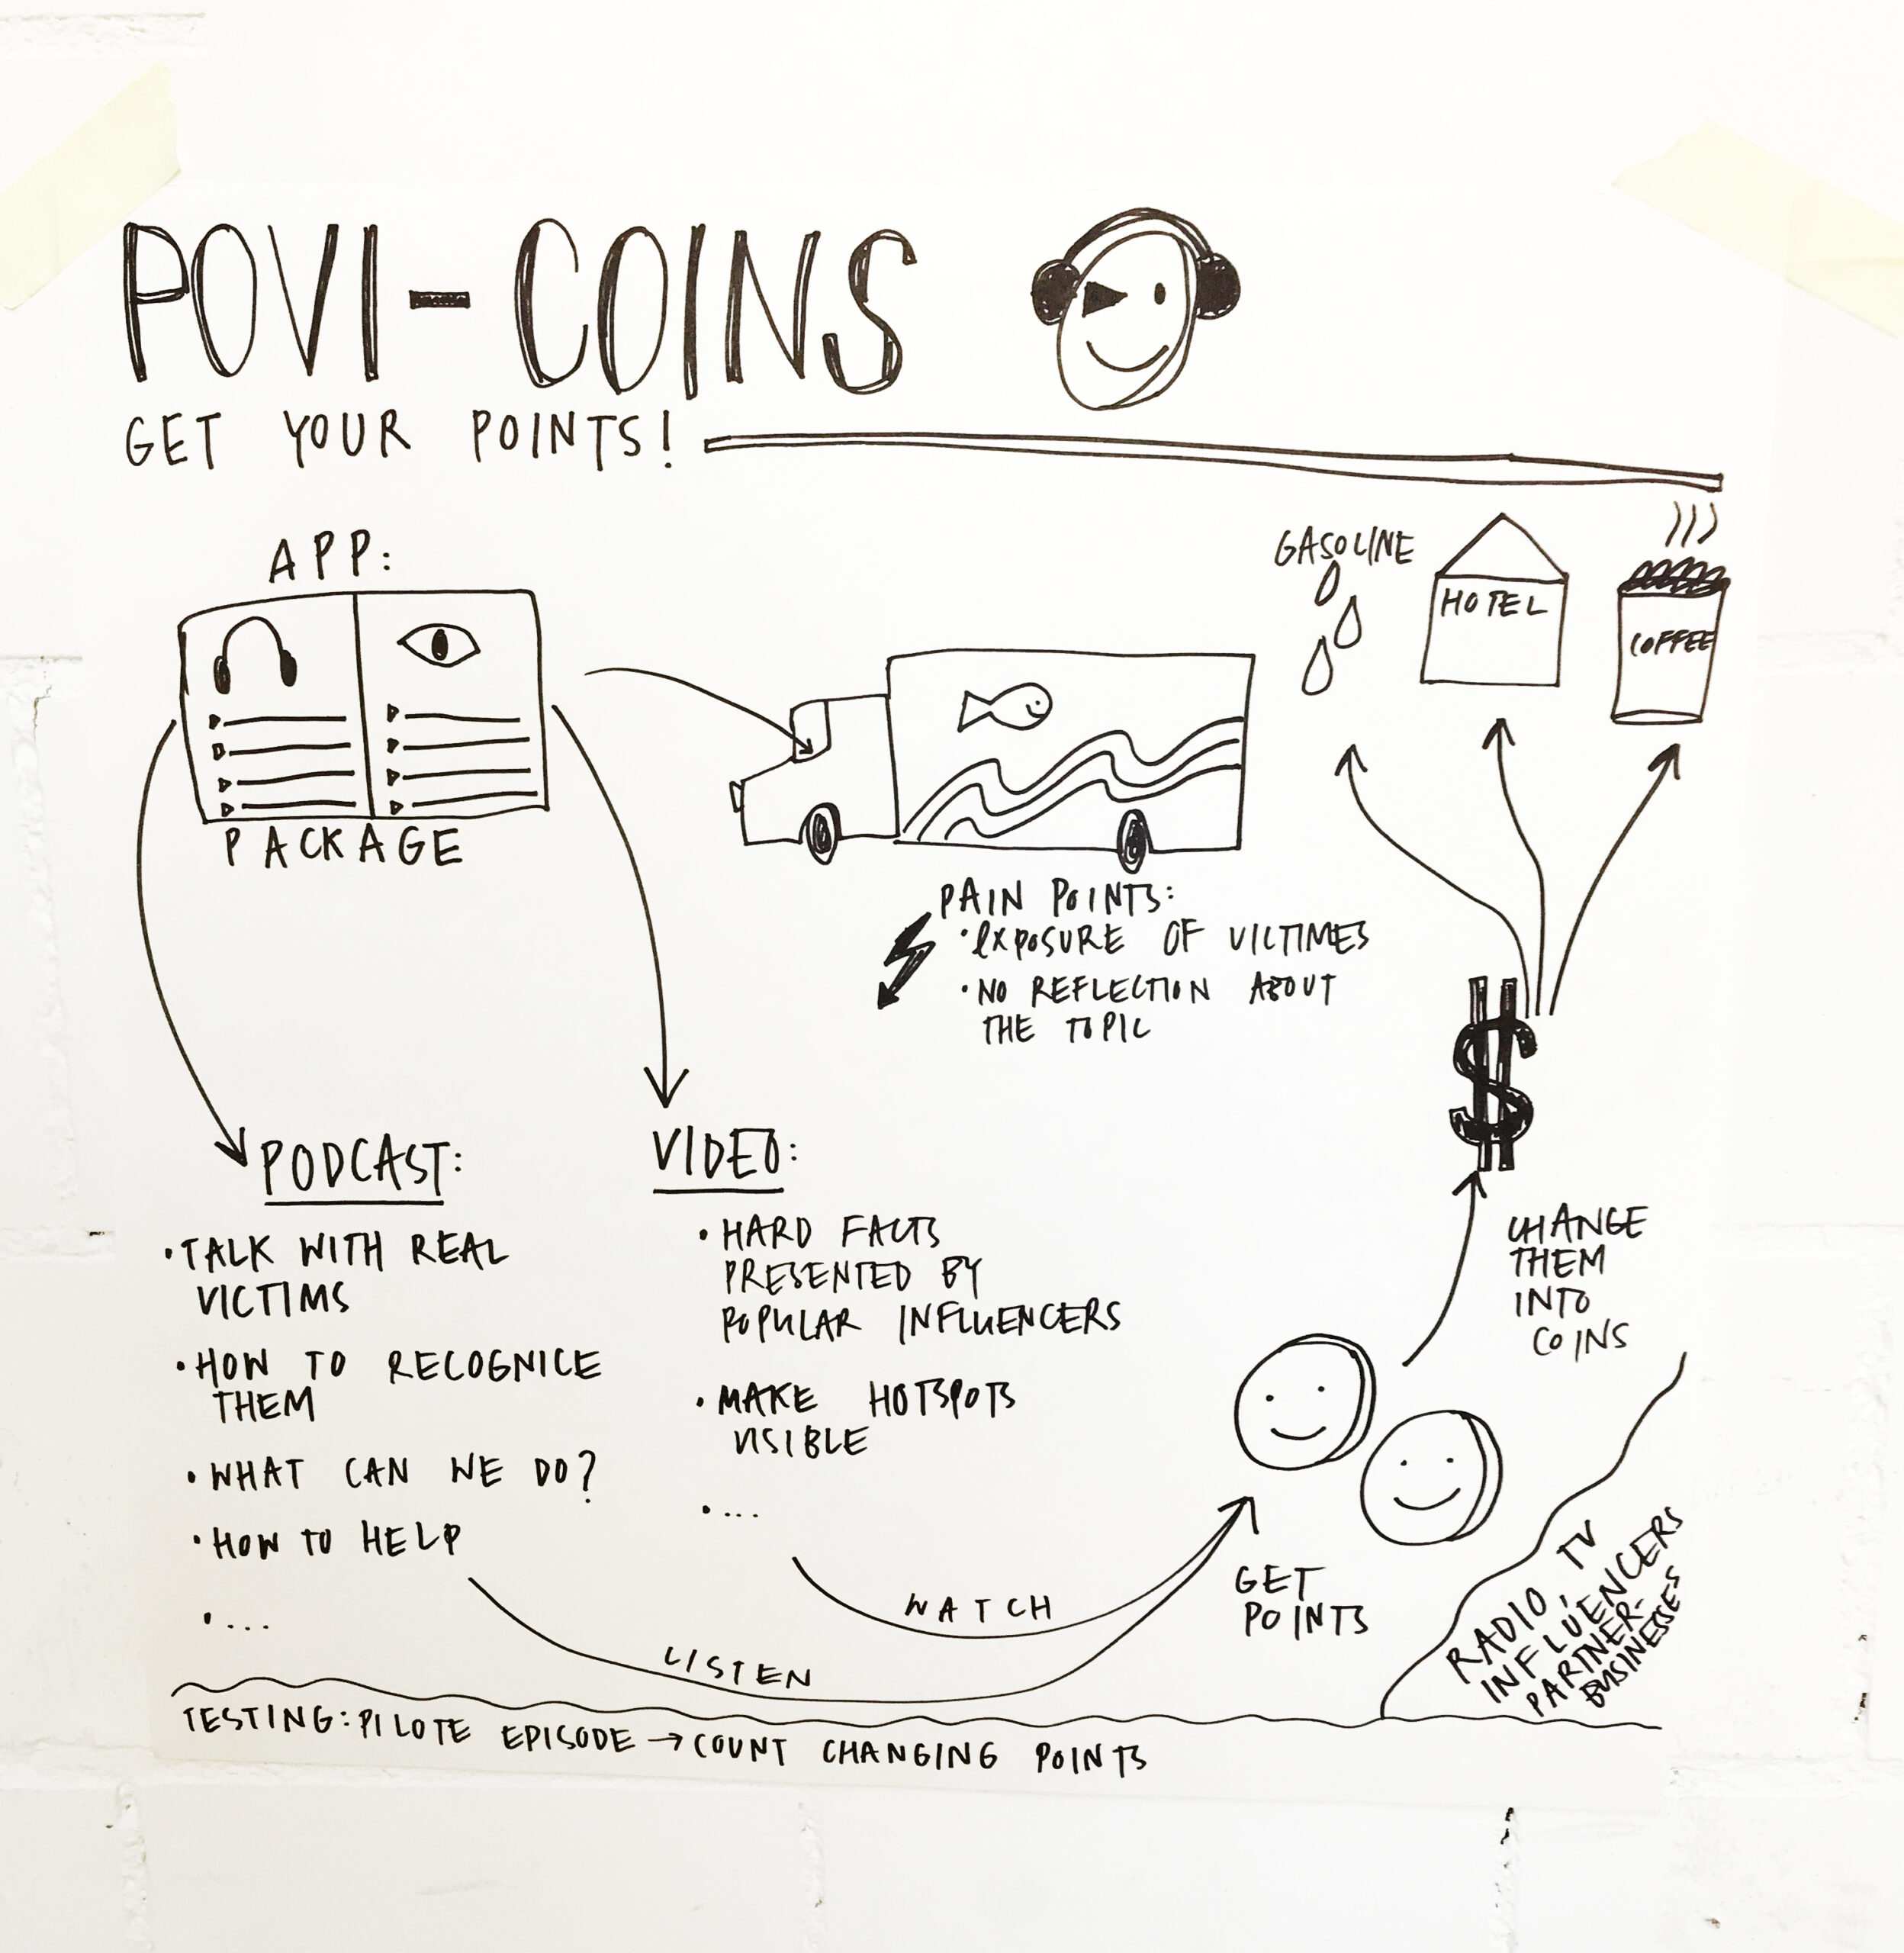 POVI-COINS
GET YOUR POINTS!
APP:
PACKAGE
GASOLINE
HOTEL
COFFEE
PAIN POINTS:
• EXPOSURE OF VICTIMES
• NO REFLECTION ABOUT
THE TOPIC
PODCAST:
• TALK WITH REAL
VICTIMS
• HOW TO RECOGNICE
THEM
• WHAT CAN WE DO?
• HOW TO HELP
• ....
VIDEO:
• HARD FACTS
PRESENTED BY
POPULAR INFLUENCERS
• MAKE HOTSPOTS
VISIBLE
• ...
WATCH
LISTEN
GET
POINTS
$
CHANGE
THEM
INTO
COINS
RADIO, TV
INFLUENCERS
PARTNER-
BUSINESSES
TESTING: PILOTE EPISODE → COUNT CHANGING POINTS